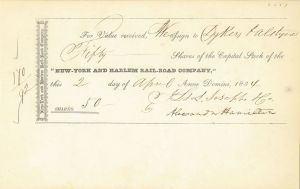 For Value received, We assign to Dykers & Alstyne
Fifty Shares of the Capital Stock of the
"NEW-YORK AND HARLEM RAIL-ROAD COMPANY,"
this 2 day of April Anno Domini, 1834
SHARES 50 J. L. & S. Joseph & Co.
Alexander Hamilton